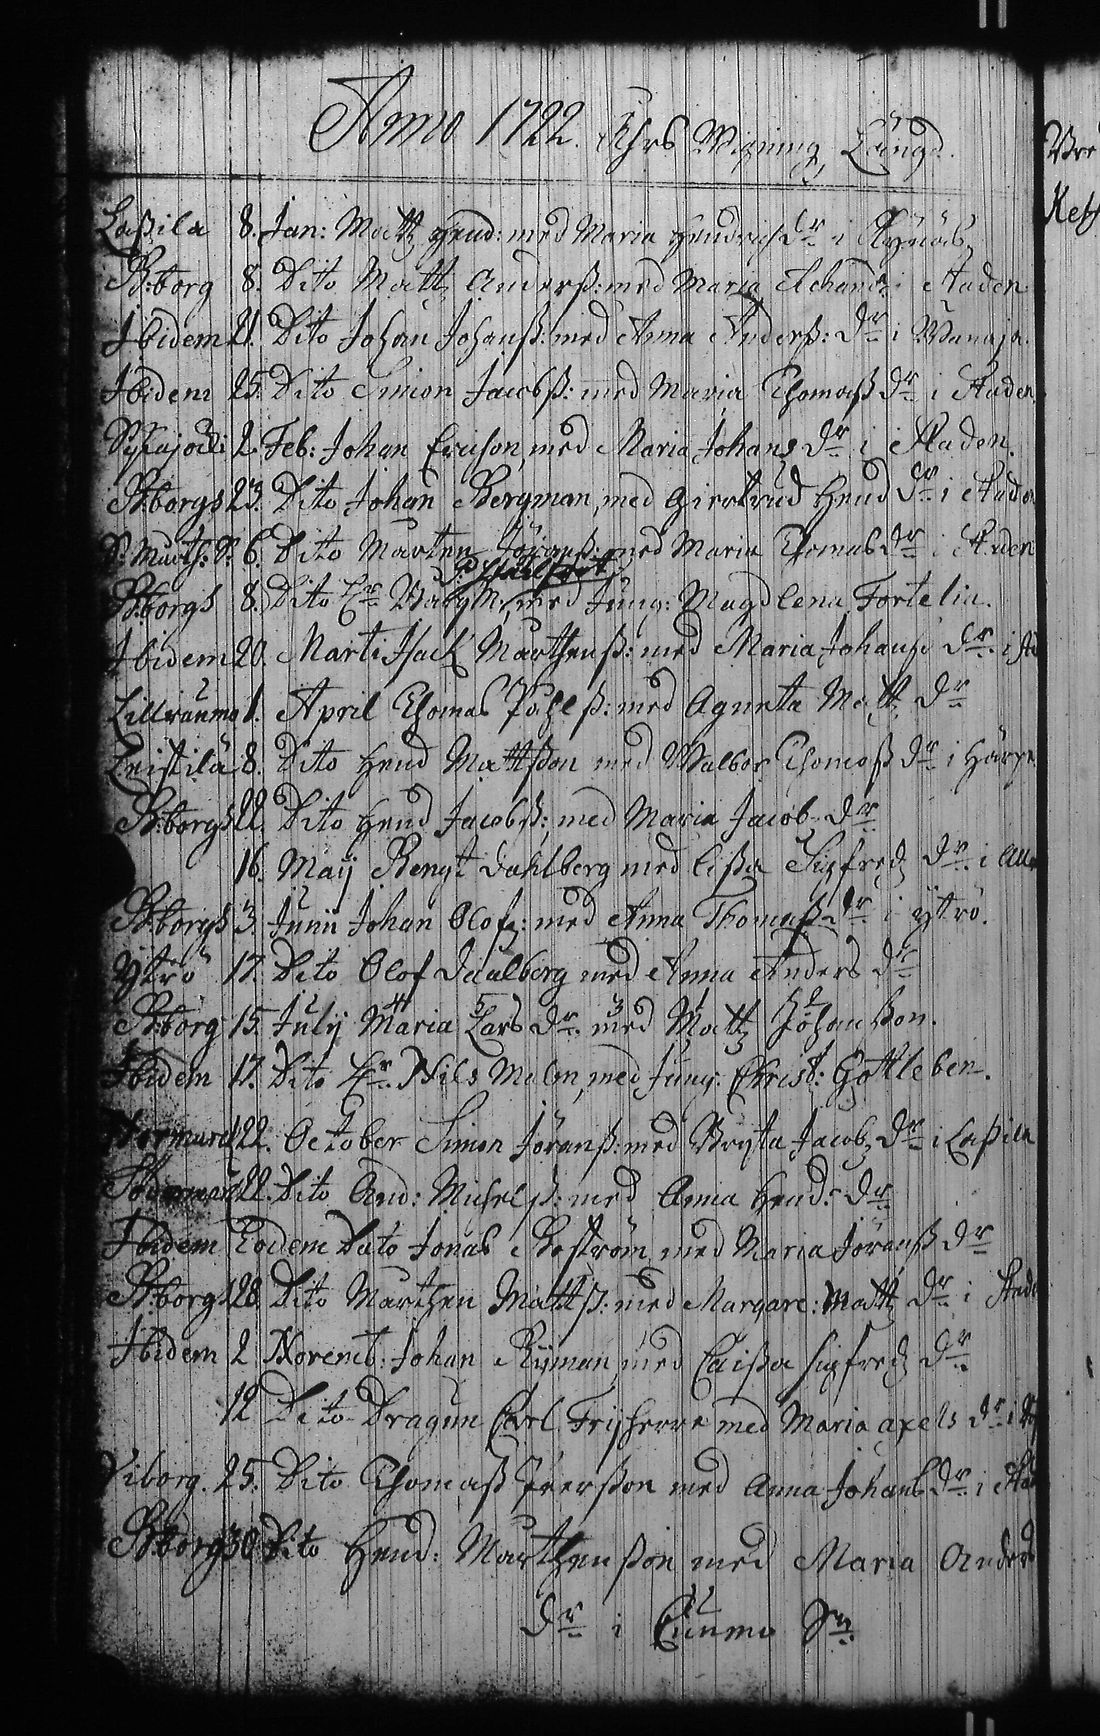 Anno 1722. Åhrs Wigning Längd.
Laßila 8. Jan: Matz Hend: med Maria Hendrich dr i
B:borg 8. Dito Matz Anderß: med Maria i Staden
Ibidem 21. Dito Johan Johanß: med Anna Anderß: dr i Wanaja.
Ibidem 25. Dito Simon Jacobß: med Maria Thomaß dr i Staden
2. Feb: Johan Ericson med Maria Johans dr i Staden.
B:borgs 23. Dito Johan Bergman, med Giertrud Hend dr i Staden
6. Dito Marten Jöranß: med Maria Thomas dr i Staden
B:borgs 8. Dito Hr med Jung: Magdlena Fortelia.
Ibidem 20. Marti Isack Marthenß: med Maria Johans dr i
Lillraumo 1. April Thomas Påhlß: med Agneta Matz dr
Leistilä 8. Dito Hend Mattßon med Walbor Thomaß dr i Harje
B:borgs 22. Dito Hend Jacobß: med Maria Jacob dr
16. Maij Bengt Dahlberg med Lißa Sigfredz dr i
B:borgs 3. Junii Johan Olofz: med Anna Thomaß dr i ytrö.
Ytterö 17. Dito Olof Daalberg med Anna Anders dr
B:borg 15. July Maria Lars dr. med Matz Johanßon.
4 5 3 1 2
Ibidem 17. Dito Hr. Nils Malm, med Jung: Christ: Gottleben.
22. October Simon Jöranß: med Bryta Jacobz dr i Laßila
22. Dito And: Michelß: med Anna Hend: dr
Ibidem Eodem Dato Jonas Boström med Maria Jöranß dr
B:borgs 28. Dito Marthen Mattß: med Margare: Matz dr i Stade
Ibidem 2 Novemb: Johan Ryman med Caißa Sigfredz dr
12 Dito Dragun Carl Frijherre med Maria axels dr i
Viborg. 25. Dito Thomaß Iverßon med Anna Johans dr i
B:borgs 30 Dito Hend: Marthenßon med Maria Anders
dr i Cuumo Sn